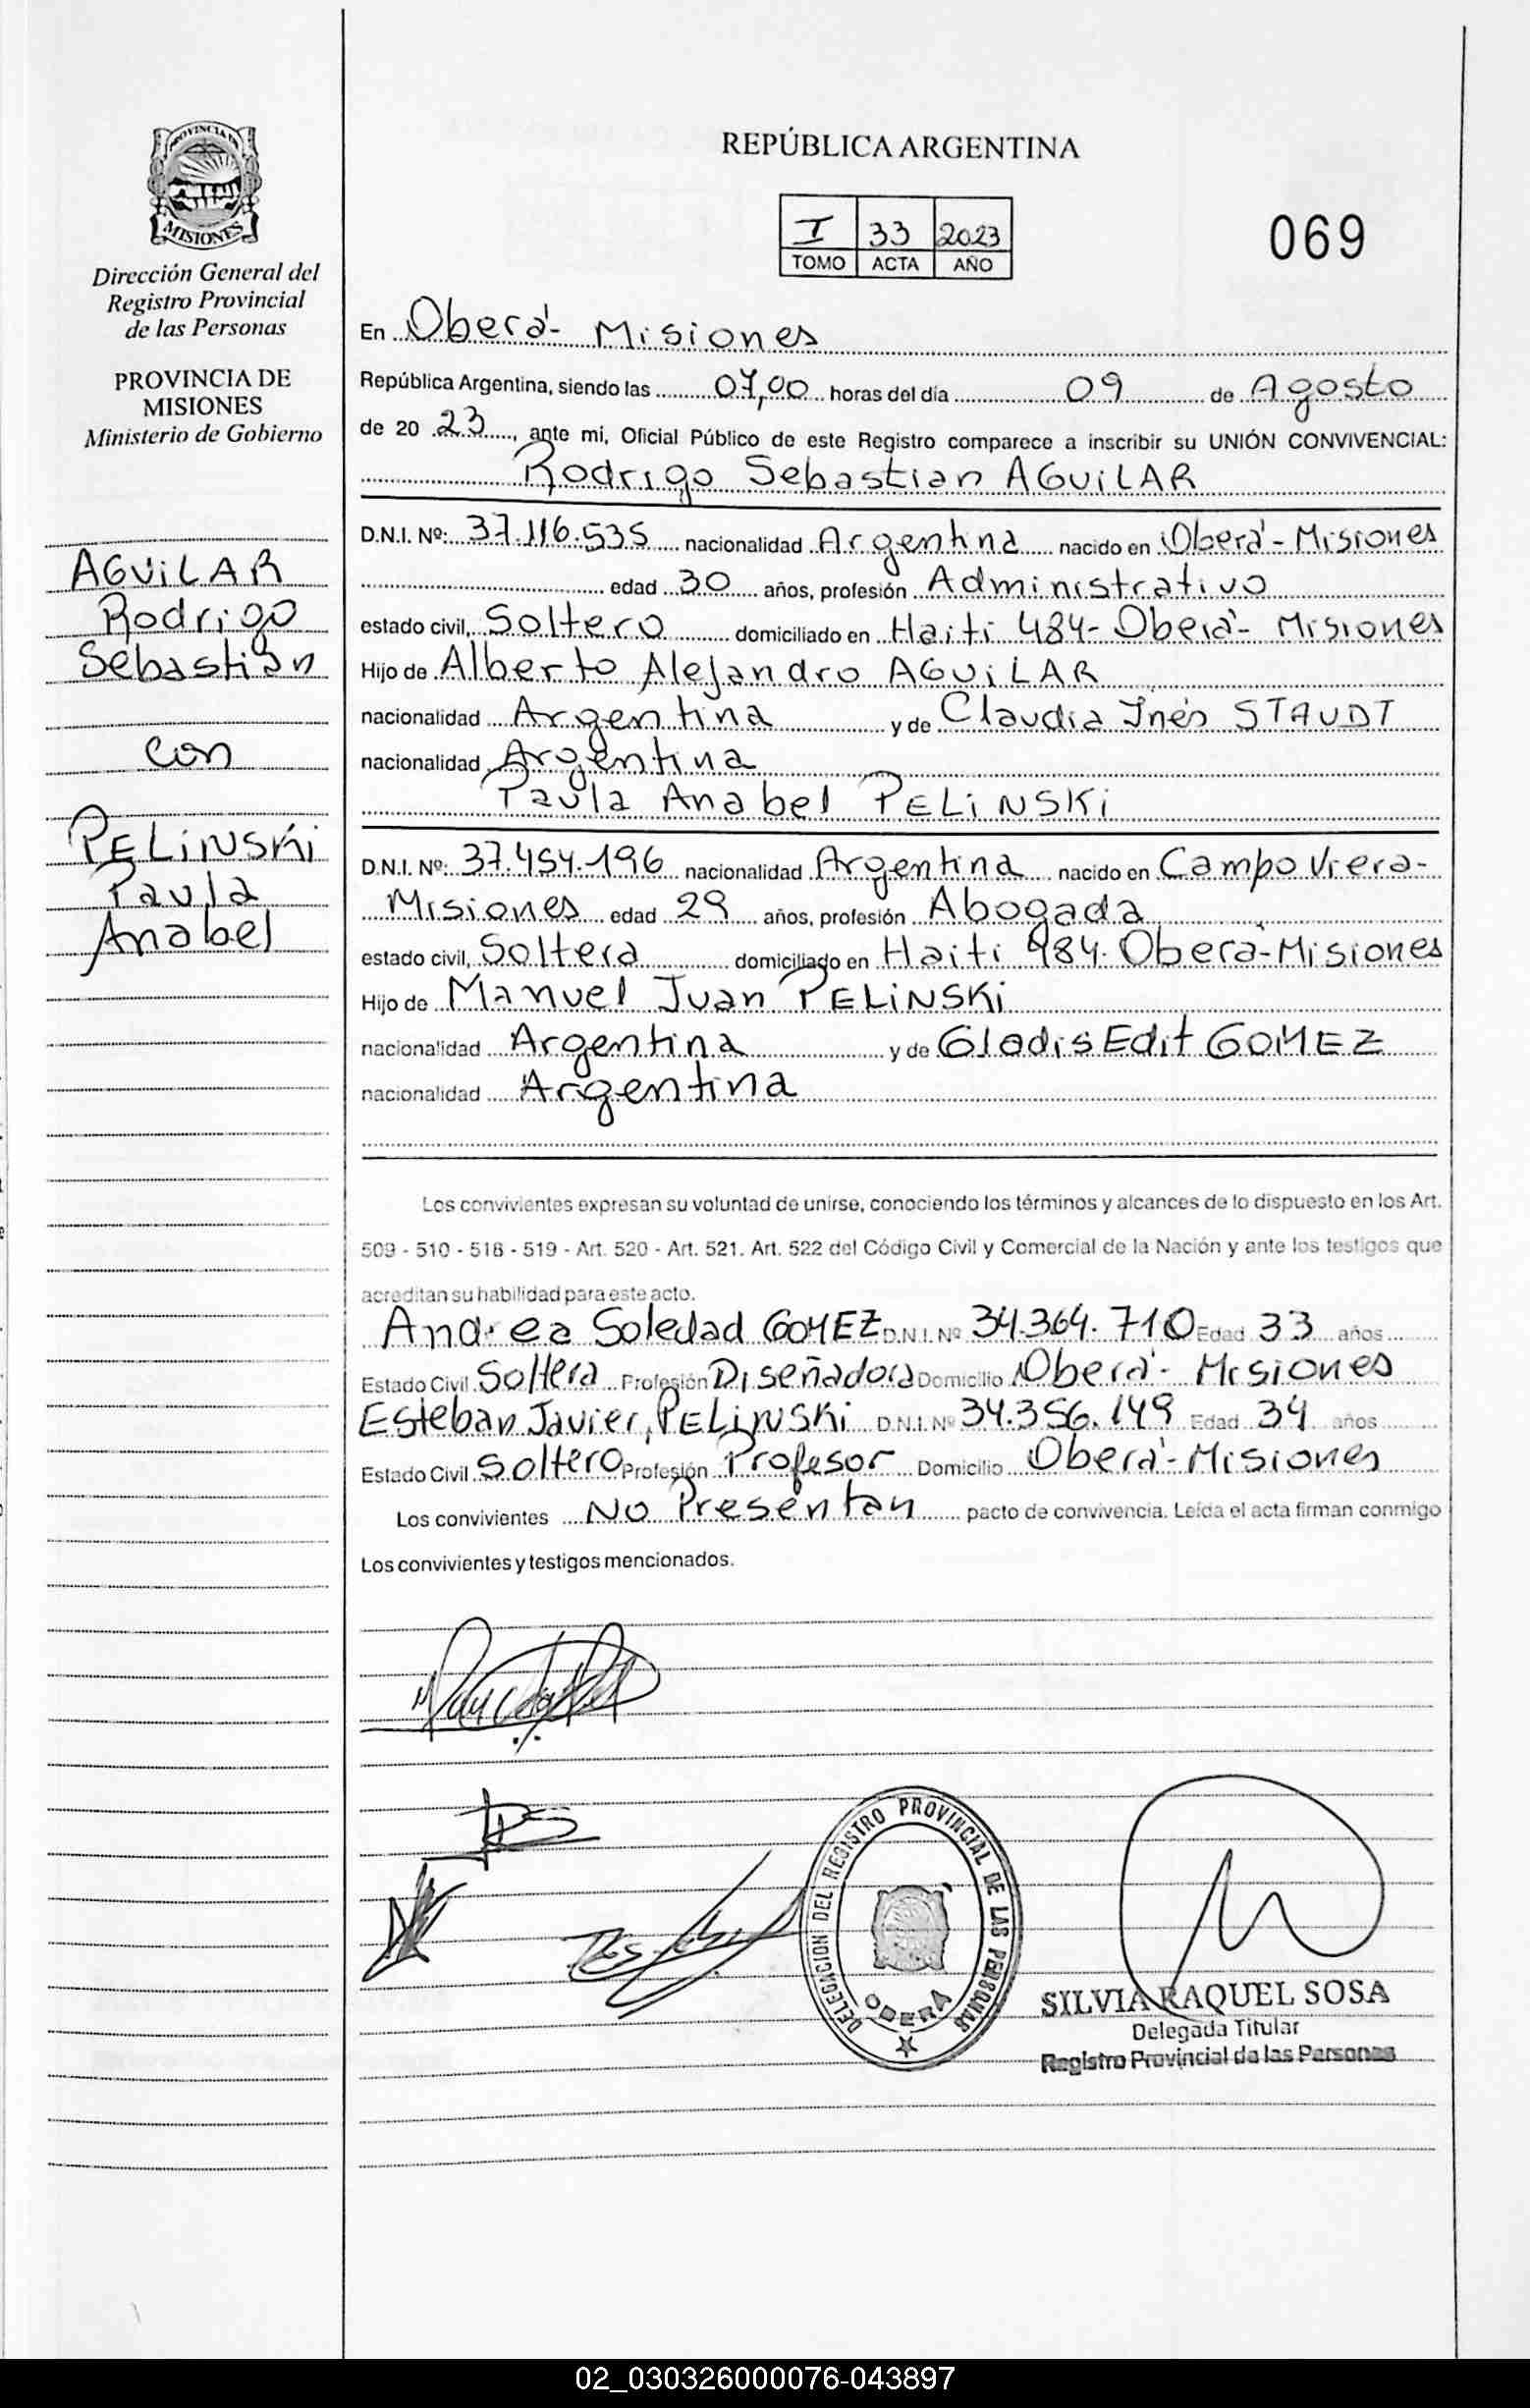 PROVINCIA DE
MISIONES
Dirección General del
Registro Provincial
de las Personas
PROVINCIA DE
MISIONES
Ministerio de Gobierno
AGUiLAR
Rodrigo
Sebastián
con
PELiNSKi
Paula
Anabel
REPÚBLICA ARGENTINA
I 33 2023
TOMO ACTA AÑO
069
En Oberá - Misiones
República Argentina, siendo las 07,00 horas del día 09 de Agosto
de 2023, ante mi, Oficial Público de este Registro comparece a inscribir su UNIÓN CONVIVENCIAL:
Rodrigo Sebastian AGUiLAR
D.N.I. Nº: 37.116.535 nacionalidad Argentina nacido en Oberá - Misiones
edad 30 años, profesión Administrativo
estado civil, Soltero domiciliado en Haiti 484 - Oberá - Misiones
Hijo de Alberto Alejandro AGUiLAR
nacionalidad Argentina y de Claudia Inés STAUDT
nacionalidad Argentina
Paula Anabel PELiNSKi
D.N.I. Nº: 37.454.196 nacionalidad Argentina nacido en Campo Viera -
Misiones edad 29 años, profesión Abogada
estado civil, Soltera domiciliado en Haiti 484. Oberá - Misiones
Hijo de Manuel Juan PELiNSKi
nacionalidad Argentina y de Gladis Edit GOMEZ
nacionalidad Argentina
Los convivientes expresan su voluntad de unirse, conociendo los términos y alcances de lo dispuesto en los Art.
509 - 510 - 518 - 519 - Art. 520 - Art. 521. Art. 522 del Código Civil y Comercial de la Nación y ante los testigos que
acreditan su habilidad para este acto.
Andrea Soledad GOMEZ D.N.I. Nº 34.364.710 Edad 33 años
Estado Civil Soltera Profesión Diseñadora Domicilio Oberá - Misiones
Esteban Javier PELiNSKi D.N.I. Nº 34.356.149 Edad 34 años
Estado Civil Soltero Profesión Profesor Domicilio Oberá - Misiones
Los convivientes No Presentan pacto de convivencia. Leída el acta firman conmigo
Los convivientes y testigos mencionados.
DELEGACION DEL REGISTRO PROVINCIAL DE LAS PERSONAS
OBERÁ
SILVIA RAQUEL SOSA
Delegada Titular
Registro Provincial de las Personas
02_030326000076-043897